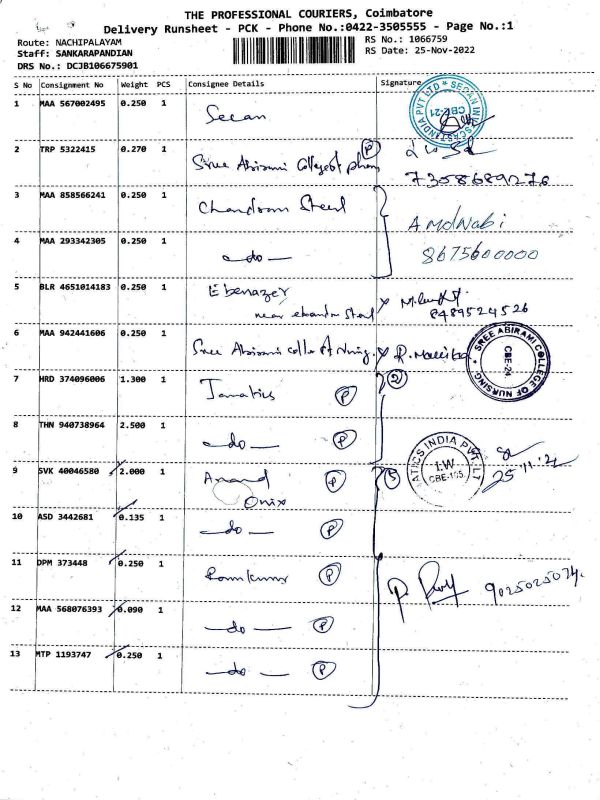 THE PROFESSIONAL COURIERS, Coimbatore
Delivery Runsheet - PCK - Phone No.:0422-3505555 - Page No.:1
Route: NACHIPALAYAM
RS No.: 1066759
Staff: SANKARAPANDIAN
RS Date: 25-Nov-2022
DRS No.: DCJB106675901
S No Consignment No Weight PCS Consignee Details Signature
1 MAA 567002495 0.250 1 Secan
CBE-21
2 TRP 5322415 0.270 1 Sree Abirami College of pham P
7358689276
3 MAA 858566241 0.250 1 Chandram Steel
A MdNabi
4 MAA 293342305 0.250 1 -do-
8675600000
5 BLR 4651014183 0.250 1 Ebenazer
near chandra Steel
8489524526
6 MAA 942441606 0.250 1 Sree Abirami colle of Nursing.
SREE ABIRAMI COLLEGE OF NURSING
CBE-24.
7 HRD 374096006 1.300 1 Jamatics P 2
8 THN 940738964 2.500 1 -do- P
ATICS INDIA PVT. LT
CBE-105
25.11.22
9 SVK 40046580 2.000 1 Anand P
Onix
10 ASD 3442681 0.135 1 -do- P
11 DPM 373448 0.250 1 Ramkumar P
9025025074.
12 MAA 568076393 0.090 1 -do- P
13 MTP 1193747 0.250 1 -do- P